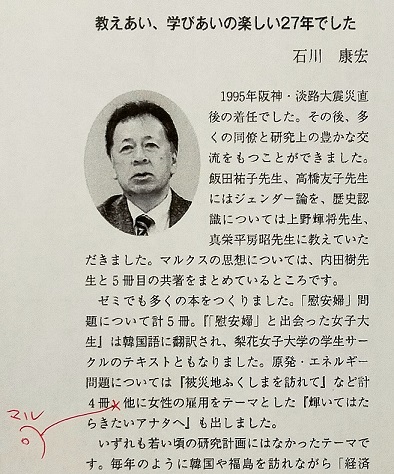 教えあい、学びあいの楽しい27年でした
石川　康宏
1995年阪神・淡路大震災直
後の着任でした。その後、多
くの同僚と研究上の豊かな交
流をもつことができました。
飯田祐子先生、高橋友子先生
にはジェンダー論を、歴史認
識については上野輝将先生、
真栄平房昭先生に教えていた
だきました。マルクスの思想については、内田樹先
生と５冊目の共著をまとめているところです。
ゼミでも多くの本をつくりました。「慰安婦」問
題について計５冊。『「慰安婦」と出会った女子大
生』は韓国語に翻訳され、梨花女子大学の学生サー
クルのテキストともなりました。原発・エネルギー
問題については『被災地ふくしまを訪れて』など計
４冊、他に女性の雇用をテーマとした『輝いてはた
らきたいアナタへ』も出しました。
マル
。
いずれも若い頃の研究計画にはなかったテーマで
す。毎年のように韓国や福島を訪れながら「経済